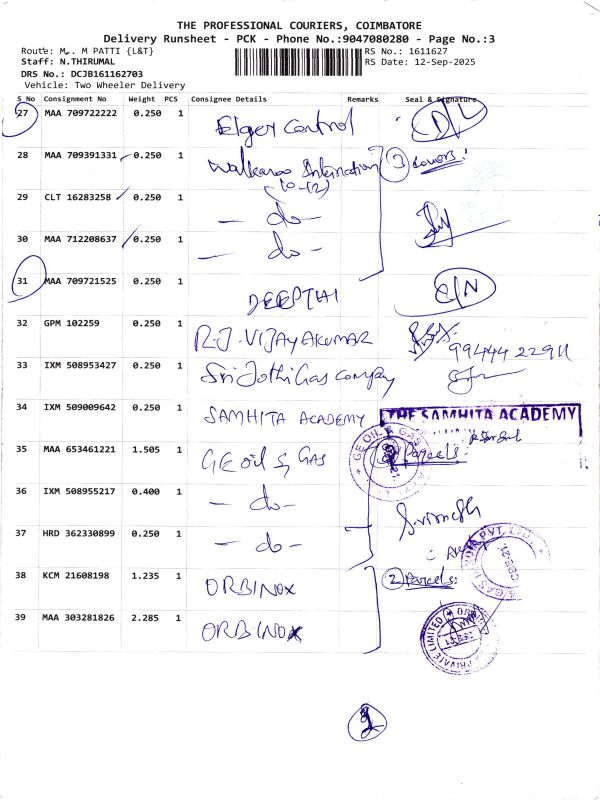 THE PROFESSIONAL COURIERS, COIMBATORE
Delivery Runsheet - PCK - Phone No.:9047080280 - Page No.:3
Route: M.. M PATTI {L&T} RS No.: 1611627
Staff: N.THIRUMAL RS Date: 12-Sep-2025
DRS No.: DCJB161162703
Vehicle: Two Wheeler Delivery
S No Consignment No Weight PCS Consignee Details Remarks Seal & Signature
27 MAA 709722222 0.250 1 Elger Control D/L
28 MAA 709391331 0.250 1 Walkaroo Internation 3 Covers:
(10-12)
29 CLT 16283258 0.250 1 - do -
30 MAA 712208637 0.250 1 - do -
31 MAA 709721525 0.250 1 DEEPTHI
32 GPM 102259 0.250 1 R.J. VIJAYAKUMAR
99444 22911
33 IXM 508953427 0.250 1 Sri Jothi Gas Company
34 IXM 509009642 0.250 1 SAMHITA ACADEMY THE SAMHITA ACADEMY
35 MAA 653461221 1.505 1 GE oil & GAS Parcels
GE OIL & GAS
36 IXM 508955217 0.400 1 - do -
37 HRD 362330899 0.250 1 - do -
38 KCM 21608198 1.235 1 ORBINOX 2 Parcels:
39 MAA 303281826 2.285 1 ORBINOX
PRIVATE LIMITED